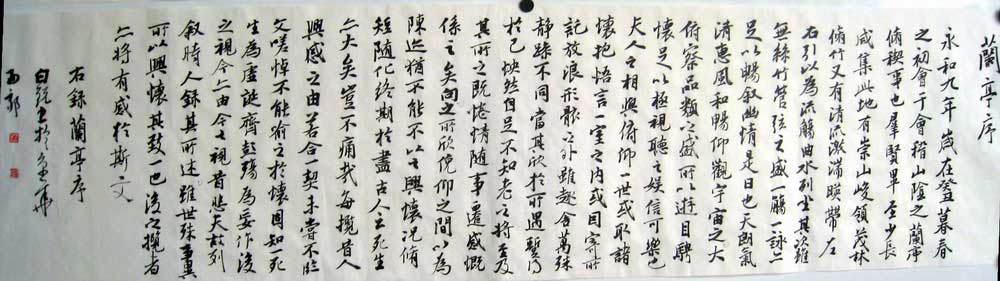 蘭亭序
永和九年歲在癸暮春
之初會于會稽山陰之蘭亭
脩稧事也羣賢畢至少長
咸集此地有崇山峻領茂林
脩竹又有清流激湍暎帶左
右引以為流觴曲水列坐其次雖
無絲竹管弦之盛一觴一詠亦
足以暢叙幽情是日也天朗氣
清惠風和暢仰觀宇宙之大
俯察品類之盛所以遊目騁
懷足以極視聽之娛信可樂也
夫人之相與俯仰一世或取諸
懷抱悟言一室之內或因寄所
託放浪形骸之外雖趣舍萬殊
静躁不同當其欣於所遇暫得
於己怏然自足不知老之將至及
其所之既惓情隨事遷感慨
係之矣向之所欣俛仰之間以為
陳迹猶不能不以之興懷況脩
短隨化終期於盡古人云死生
亦大矣豈不痛哉每攬昔人
興感之由若合一契未嘗不臨
文嗟悼不能喻之於懷固知一死
生為虛誕齊彭殤為妄作後
之視今亦由今之視昔悲夫故列
叙時人錄其所述雖世殊事異
所以興懷其致一也後之攬者
亦將有感於斯文
右錄蘭亭序
西郭